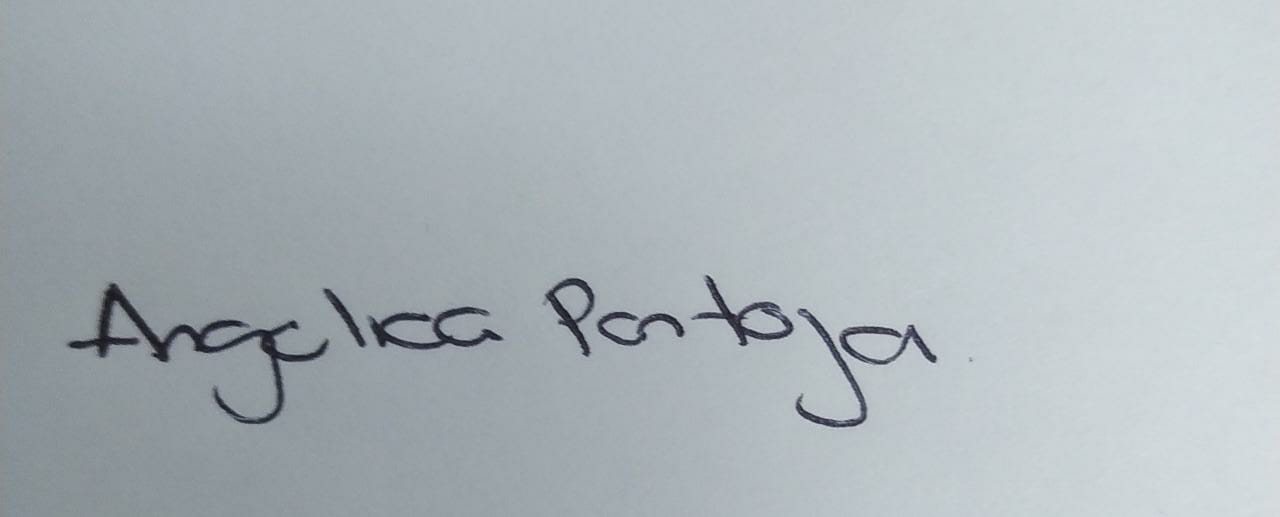 Angelica Pantoja